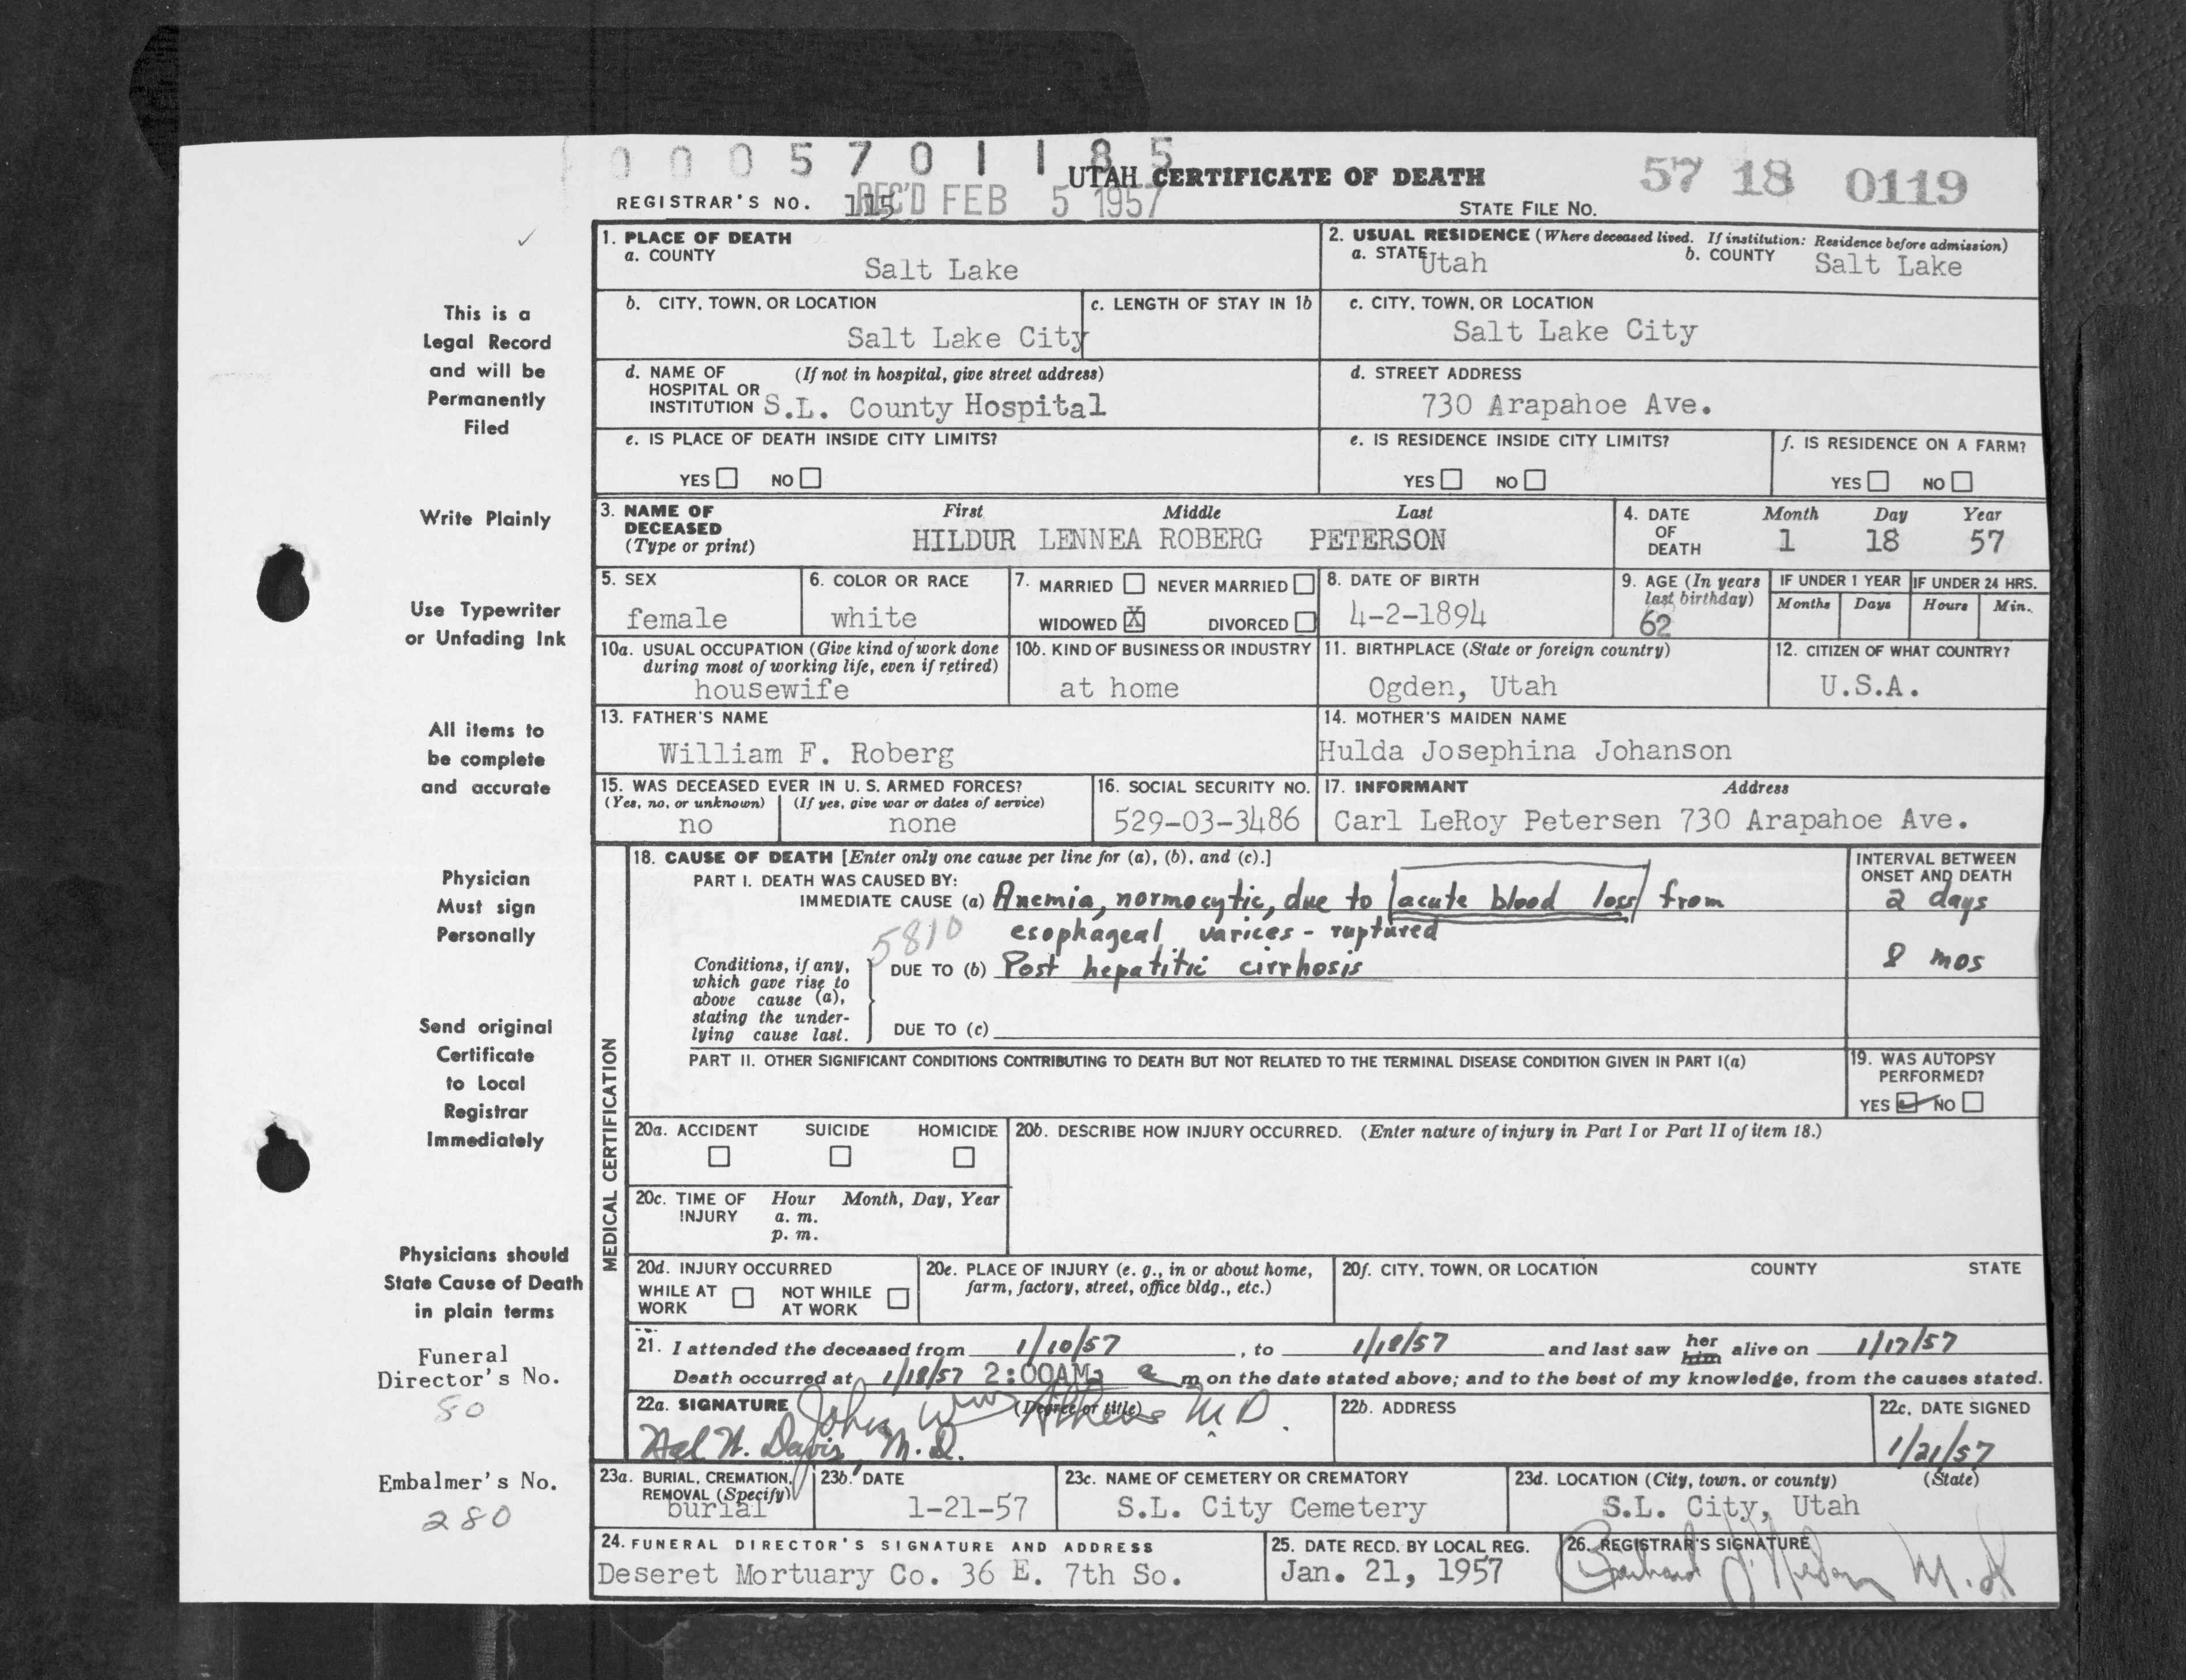 0 0 0 5 7 0 1 1 8 5
UTAH CERTIFICATE OF DEATH
57 18 0119
REGISTRAR'S NO. 115
REC'D FEB 5 1957
STATE FILE NO.
1. PLACE OF DEATH
a. COUNTY
Salt Lake
2. USUAL RESIDENCE (Where deceased lived. If institution: Residence before admission)
a. STATE Utah
b. COUNTY Salt Lake
b. CITY, TOWN, OR LOCATION
Salt Lake City
c. LENGTH OF STAY IN 1b
c. CITY, TOWN, OR LOCATION
Salt Lake City
d. NAME OF (If not in hospital, give street address)
HOSPITAL OR
INSTITUTION S.L. County Hospital
d. STREET ADDRESS
730 Arapahoe Ave.
e. IS PLACE OF DEATH INSIDE CITY LIMITS?
YES NO
e. IS RESIDENCE INSIDE CITY LIMITS?
YES NO
f. IS RESIDENCE ON A FARM?
YES NO
3. NAME OF
DECEASED
(Type or print)
First Middle Last
HILDUR LENNEA ROBERG PETERSON
4. DATE
OF
DEATH
Month Day Year
1 18 57
5. SEX
female
6. COLOR OR RACE
white
7. MARRIED NEVER MARRIED
WIDOWED X DIVORCED
8. DATE OF BIRTH
4-2-1894
9. AGE (In years
last birthday)
62
IF UNDER 1 YEAR
Months Days
IF UNDER 24 HRS.
Hours Min.
10a. USUAL OCCUPATION (Give kind of work done
during most of working life, even if retired)
housewife
10b. KIND OF BUSINESS OR INDUSTRY
at home
11. BIRTHPLACE (State or foreign country)
Ogden, Utah
12. CITIZEN OF WHAT COUNTRY?
U.S.A.
13. FATHER'S NAME
William F. Roberg
14. MOTHER'S MAIDEN NAME
Hulda Josephina Johanson
15. WAS DECEASED EVER IN U. S. ARMED FORCES?
(Yes, no, or unknown) (If yes, give war or dates of service)
no none
16. SOCIAL SECURITY NO.
529-03-3486
17. INFORMANT Address
Carl LeRoy Petersen 730 Arapahoe Ave.
MEDICAL CERTIFICATION
18. CAUSE OF DEATH [Enter only one cause per line for (a), (b), and (c).]
PART I. DEATH WAS CAUSED BY:
IMMEDIATE CAUSE (a) Anemia, normocytic, due to acute blood loss from
esophageal varices - ruptured
5810
Conditions, if any,
which gave rise to
above cause (a),
stating the under-
lying cause last.
DUE TO (b) Post hepatitic cirrhosis
DUE TO (c)
INTERVAL BETWEEN
ONSET AND DEATH
2 days
8 mos
PART II. OTHER SIGNIFICANT CONDITIONS CONTRIBUTING TO DEATH BUT NOT RELATED TO THE TERMINAL DISEASE CONDITION GIVEN IN PART I(a)
19. WAS AUTOPSY
PERFORMED?
YES NO
20a. ACCIDENT SUICIDE HOMICIDE
20b. DESCRIBE HOW INJURY OCCURRED. (Enter nature of injury in Part I or Part II of item 18.)
20c. TIME OF Hour Month, Day, Year
INJURY a. m.
p. m.
20d. INJURY OCCURRED
WHILE AT
WORK
NOT WHILE
AT WORK
20e. PLACE OF INJURY (e. g., in or about home,
farm, factory, street, office bldg., etc.)
20f. CITY, TOWN, OR LOCATION COUNTY STATE
21. I attended the deceased from 1/10/57, to 1/18/57 and last saw her him alive on 1/17/57
Death occurred at 1/18/57 2:00AM a m on the date stated above; and to the best of my knowledge, from the causes stated.
22a. SIGNATURE (Degree or title)
John M D.
Hal N. Davis, M.D.
22b. ADDRESS
22c. DATE SIGNED
1/21/57
23a. BURIAL, CREMATION,
REMOVAL (Specify)
burial
23b. DATE
1-21-57
23c. NAME OF CEMETERY OR CREMATORY
S.L. City Cemetery
23d. LOCATION (City, town, or county) (State)
S.L. City, Utah
24. FUNERAL DIRECTOR'S SIGNATURE AND ADDRESS
Deseret Mortuary Co. 36 E. 7th So.
25. DATE RECD. BY LOCAL REG.
Jan. 21, 1957
26. REGISTRAR'S SIGNATURE
M.D.
This is a
Legal Record
and will be
Permanently
Filed
Write Plainly
Use Typewriter
or Unfading Ink
All items to
be complete
and accurate
Physician
Must sign
Personally
Send original
Certificate
to Local
Registrar
Immediately
Physicians should
State Cause of Death
in plain terms
Funeral
Director's No.
80
Embalmer's No.
280